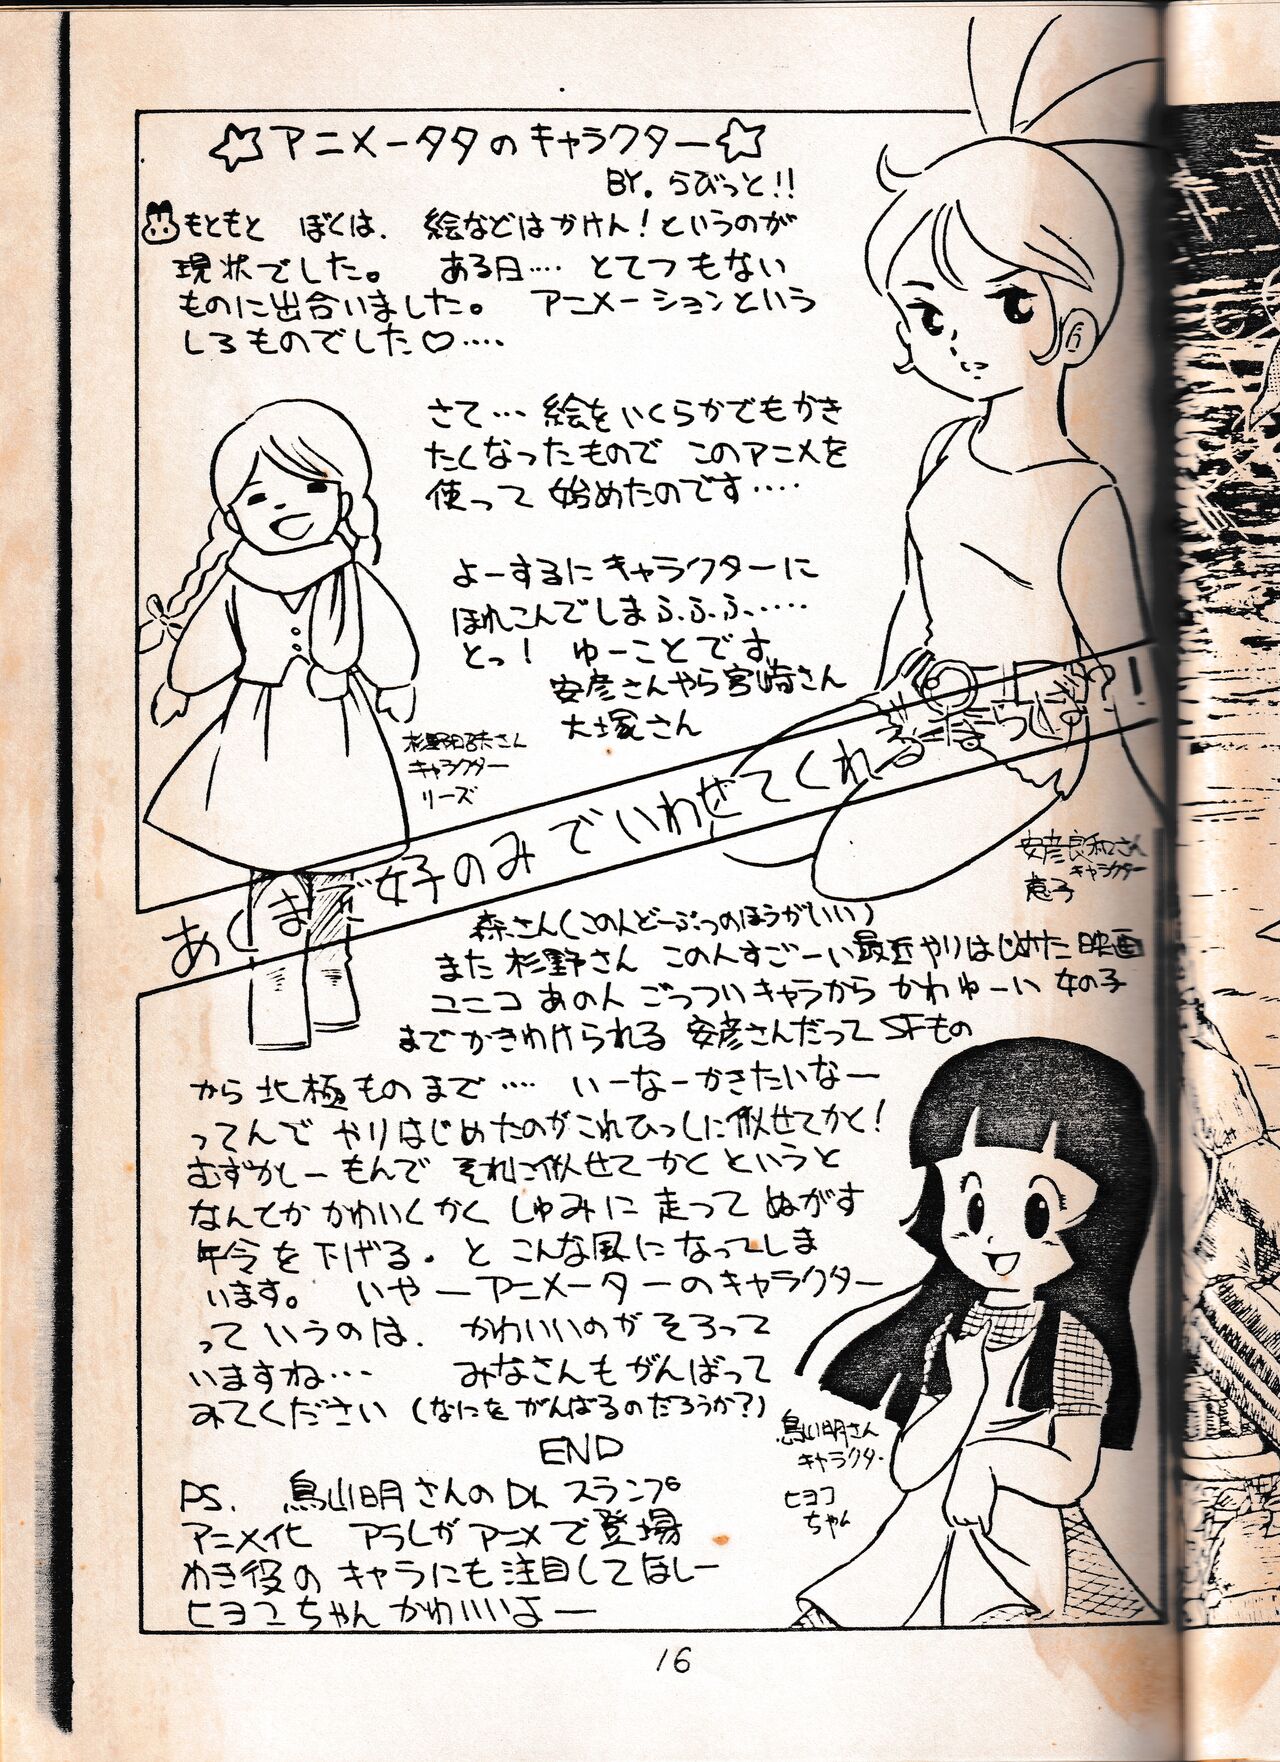 ☆アニメータタのキャラクター☆
BY. らびっと!!
もともと ぼくは、絵などはかけん!というのが
現状でした。 ある日‥‥ とてつもない
ものに出合いました。 アニメーションという
しろものでした♡‥‥
さて‥‥ 絵をいくらかでもかき
たくなったもので このアニメを
使って 始めたのです‥‥
よーするに キャラクターに
ほれこんでしまふふふ‥‥‥
とっ! ゆーことです
安彦さんやら宮崎さん
大塚さん
杉野昭夫さん
キャラクター
リーズ
あくまで女子のみでいわせてくれる
安彦良和さん
キャラクター
恵子
森さん(この人どーぶつのほうがいい)
また 杉野さん この人すごーい 最近やりはじめた 映画
ユニコ あの人 ごっついキャラから かわゆーい 女の子
までかきわけられる 安彦さんだって SFもの
から 北極ものまで‥‥ いーなーかきたいなー
ってんで やりはじめたのがこれひっしに似せてかと!
むずかしーもんで それに似せて かくというと
なんてか かわいくかく しゅみに 走って ぬがす
年令を下げる・と こんな風になってしま
います。 いやーアニメーターのキャラクター
っていうのは、かわいいのが そろって
いますね‥‥ みなさんもがんばって
みてください (なにを がんばるのだろうか?)
END
PS. 鳥山明さんのDr.スランプ
アニメ化 アラレがアニメで登場
わき役の キャラにも注目してほしー
ヒヨコちゃん かわいいよー
鳥山明さん
キャラクター
ヒヨコ
ちゃん
16